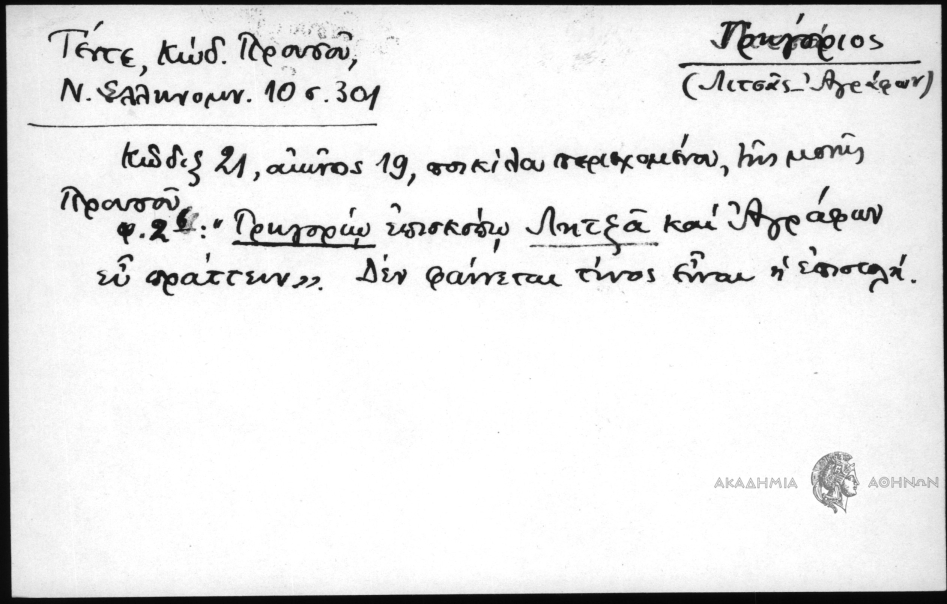 Γρηγόριος
(Λιτσᾶς - Ἀγράφων)
Κώδ. Προυσοῦ,
Ν. Ἑλληνομν. 10 σ. 301
Κῶδιξ 21, αἰῶνος 19, ποικίλου περιεχομένου, τῆς μονῆς
Προυσοῦ
φ. 2: "Γρηγορίῳ ἐπισκόπῳ Λητζᾶ καὶ Ἀγράφων
εὖ πράττειν». Δὲν φαίνεται τίνος εἶναι ἡ ἐπιστολή.
ΑΚΑΔΗΜΙΑ ΑΘΗΝΩΝ